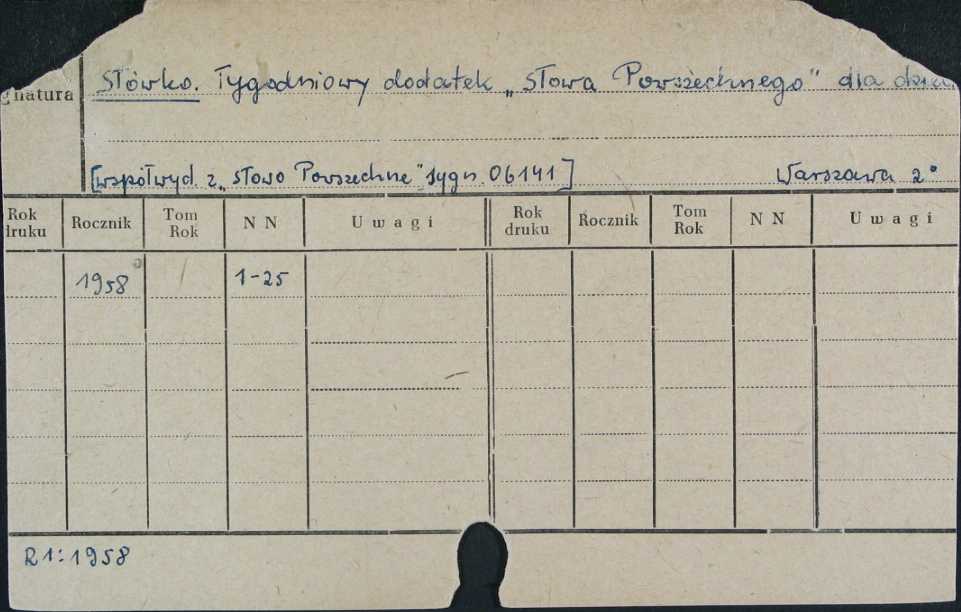 Słówko. Tygodniowy dodatek „Słowa Powszechnego" dla dzieci
gnatura
[współwyd. z „Słowo Powszechne" sygn. 06141] Warszawa 2°
Rok druku Rocznik Tom Rok N N Uwagi Rok druku Rocznik Tom Rok N N Uwagi
1958 1-25
R1:1958